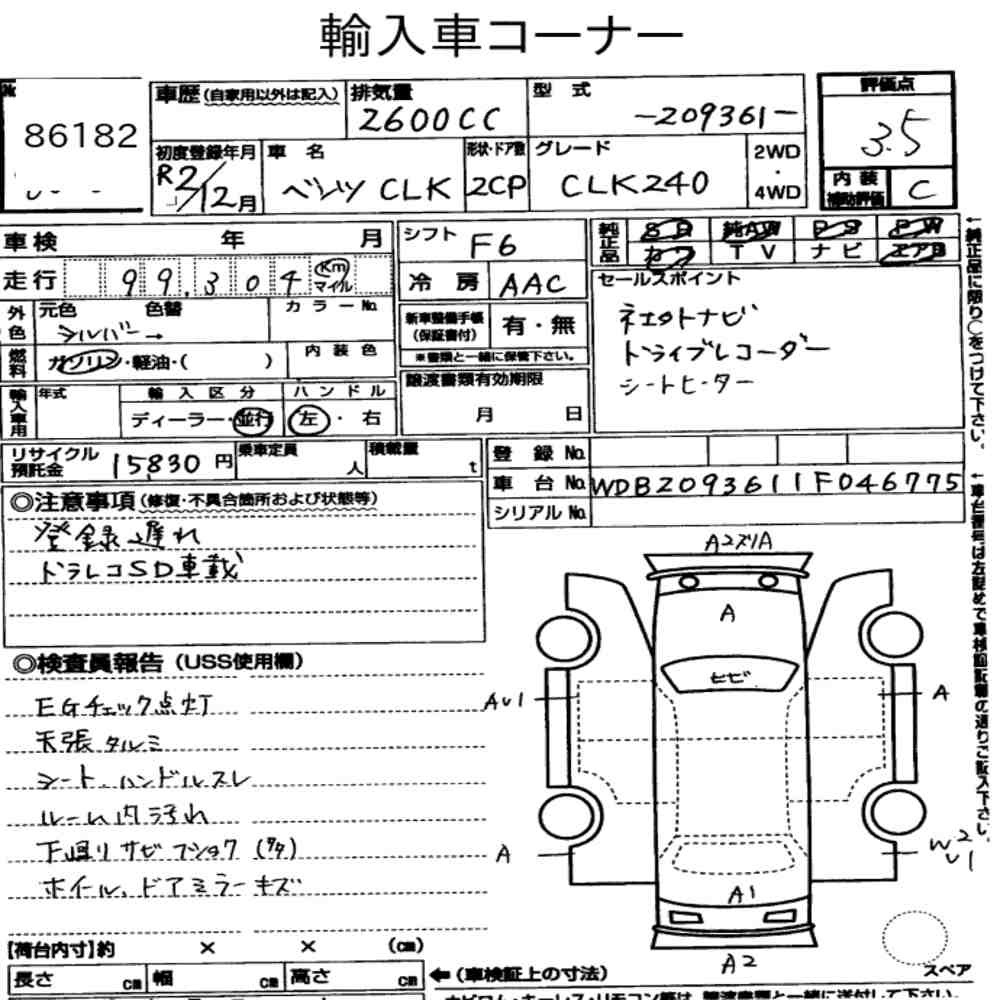 輸入車コーナー
86182
車歴(自家用以外は記入)
排気量
2600CC
型 式
-209361-
評価点
3.5
初度登録年月
R2/12月
車 名
ベンツ CLK
形状・ドア数
2CP
グレード
CLK240
2WD
・
4WD
内 装
補助評価
C
車検 年 月
シフト F6
純正品
SR 純AW PS PW
カワ TV ナビ エアB
走行 99,304 Km マイル
冷 房 AAC
セールスポイント
ネエクトナビ
ドライブレコーダー
シートヒーター
外色
元色 色替
シルバー →
カラーNo.
新車整備手帳
(保証書付)
有・無
※書類と一緒に保管下さい。
燃料
ガソリン・軽油・( )
内装色
譲渡書類有効期限
月 日
輸入車用
年式
輸入区分
ディーラー・並行
ハンドル
左・右
リサイクル
預託金
15830円
乗車定員
人
積載量
t
登 録 No.
車 台 No.
WDB2093611F046775
シリアル No.
←純正品に限り○をつけて下さい。
←車台番号は左詰めで車検証記載の通りご記入下さい。
◎注意事項(修復・不具合箇所および状態等)
登録遅れ
ドラレコSD車載
◎検査員報告(USS使用欄)
EGチェック点灯
天張タルミ
シート、ハンドルスレ
ルーム内汚れ
下廻りサビフショク(タタ)
ホイール、ドアミラーキズ
A2ズリA
A
ヒビ
AU1
A
A
W2
U1
A1
A2
スペア
【荷台内寸】約 × × (cm)
長さ cm 幅 cm 高さ cm
←(車検証上の寸法)